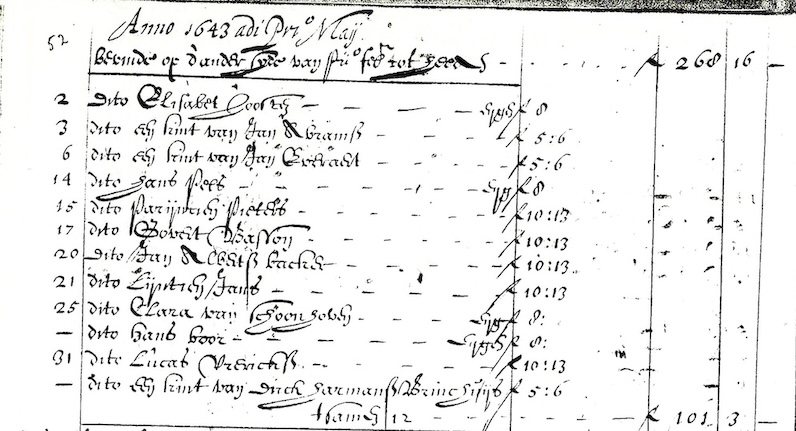 52 Anno 1643 adi Prmo Maij
bevinde op d'ander zyde van pro feb tot heer - - - - f 268 16 —
2 dito Elisabet Joosten — — — eygen f 8
3 dito een kint van Jan Abrams — — — f 5:6
6 dito een kint van Jan Everaert — — f 5:6
14 dito Hans Pels — — — — eyg f 8
15 dito Parijntien Pieters — — — — f 10:13
17 dito Govert Basson — — — — f 10:13
20 dito Jan Albertß backer — — — f 10:13
21 dito Lijntien Jans — — — — f 10:13
25 dito Clara van Schoonhoven — — eyg f 8:
— dito Hans boor — — — — eygen f 8:
31 dito Lucas — — — f 10:13
— dito een kint van Dirck Harmanß f 5:6
tsamen 12 — — — — f 101 3 —